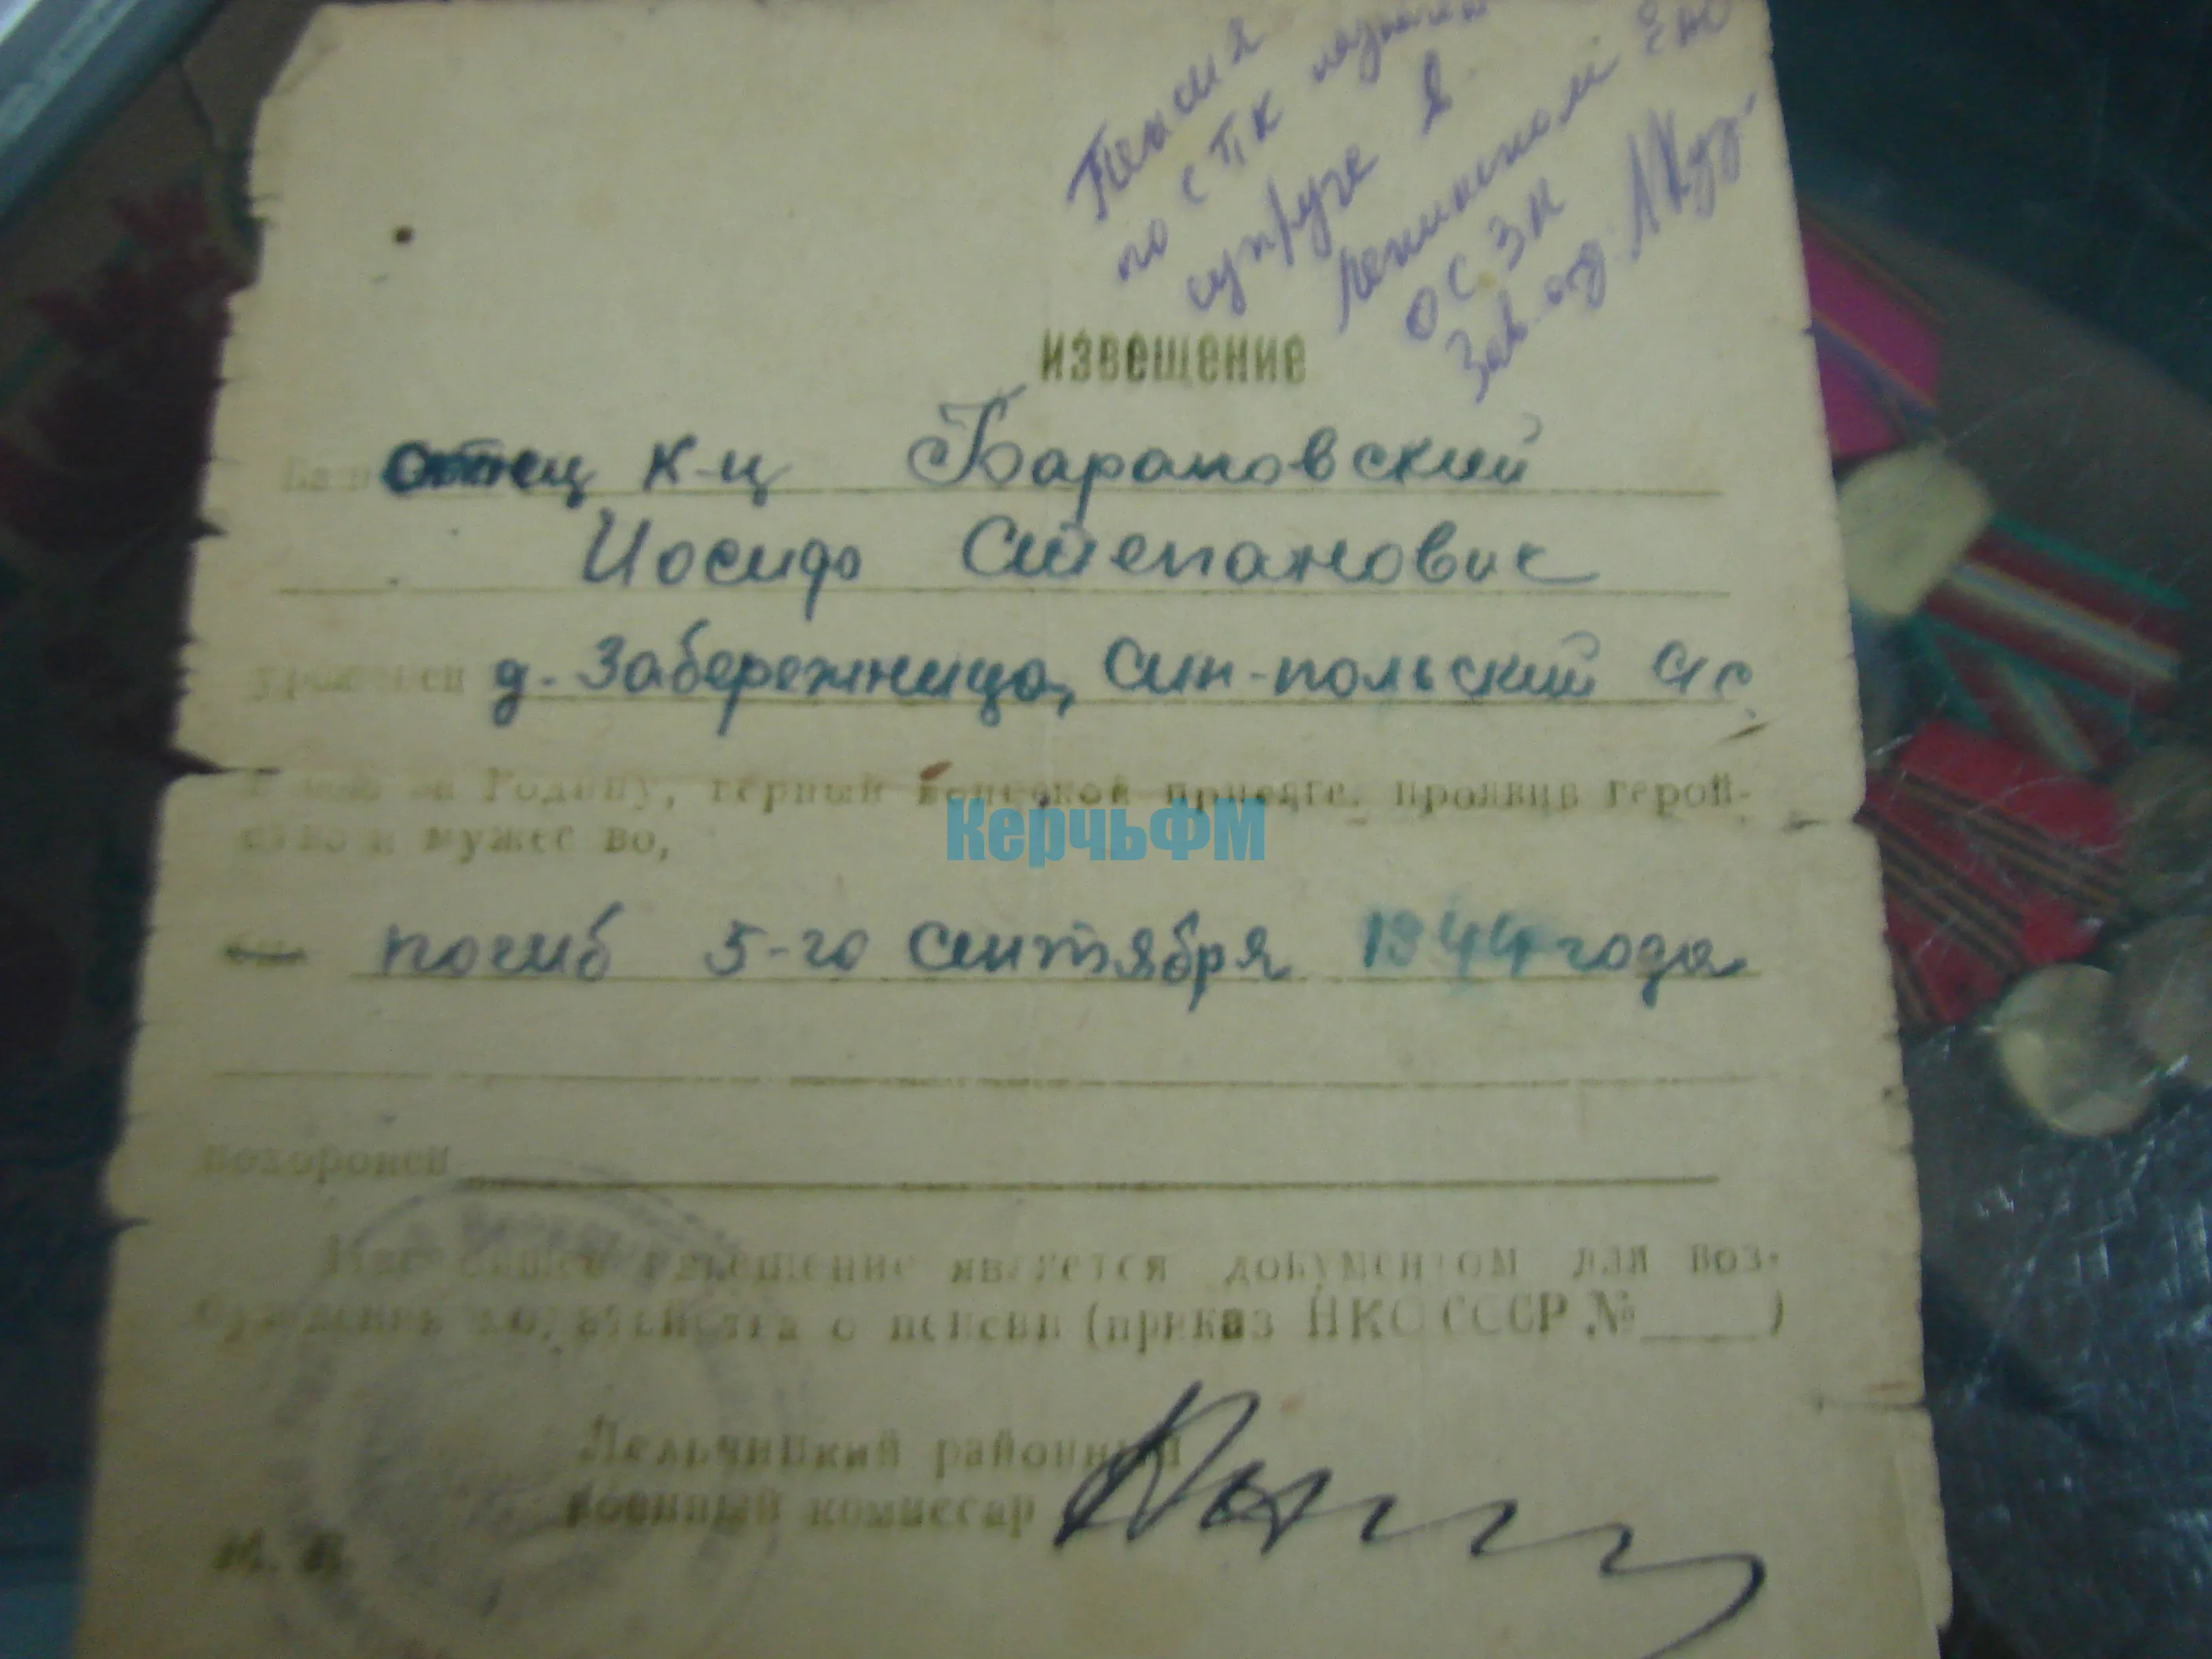 Пенсия
по СПК назначена
супруге в
Ленинском
ОСЗН
Зав. отд.
ИЗВЕЩЕНИЕ
Ваш отец к-ц Барановский
Иосиф Степанович
уроженец д. Забережница, Син-польский с/с
В бою за Родину, верный воинской присяге, проявив герой-
ство и мужество,
погиб 5-го сентября 1944 года
похоронен
Настоящее извещение является документом для воз-
буждения ходатайства о пенсии (приказ НКО СССР №____)
Лельчицкий районный
военный комиссар
М. П.
КерчьФМ